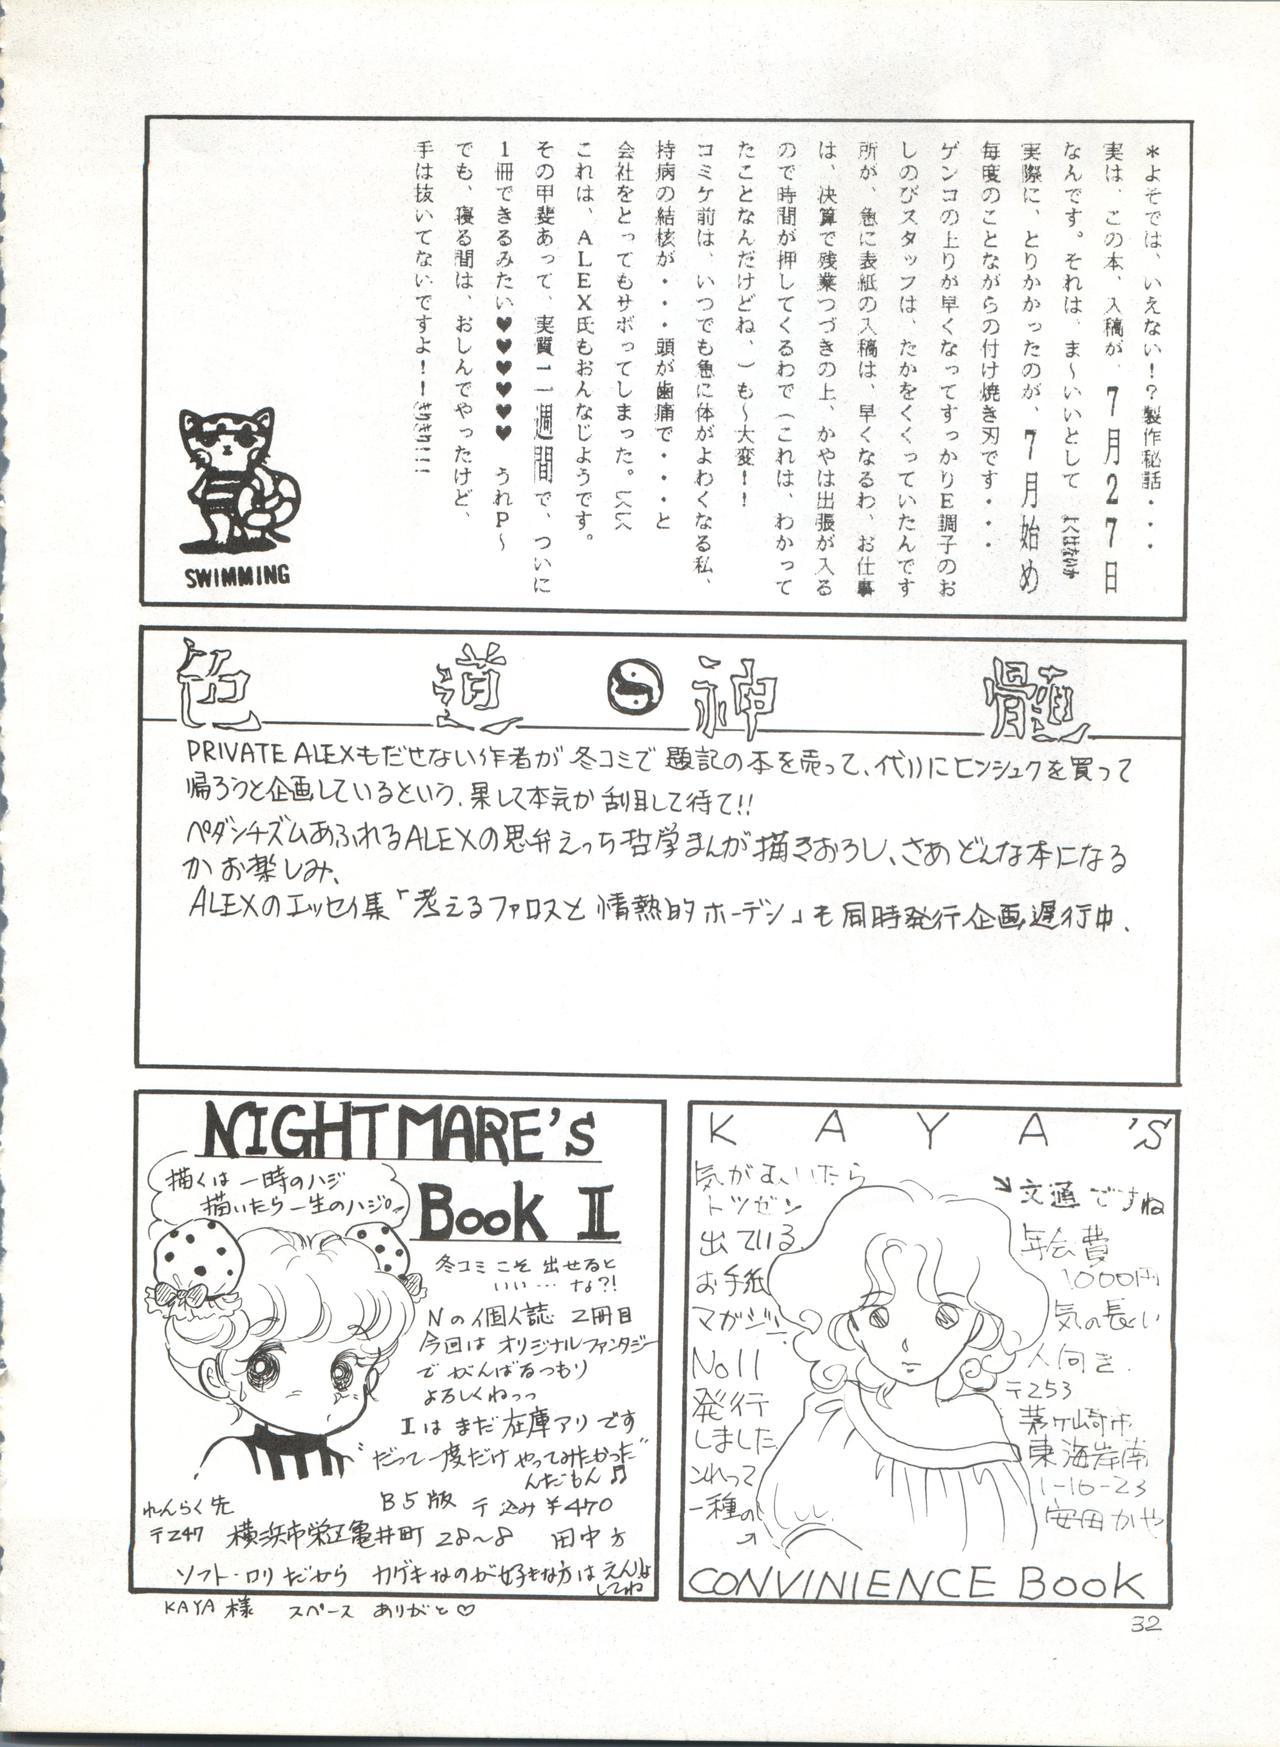 ＊よそでは、いえない！？製作秘話・・・
実は、この本、入稿が、7月27日
なんです。それは、ま～いいとして
実際に、とりかかったのが、7月始め
毎度のことながらの付け焼き刃です・・・
ゲンコの上りが早くなってすっかりE調子のお
しのびスタッフは、たかをくくっていたんです
所が、急に表紙の入稿は、早くなるわ、お仕事
は、決算で残業つづきの上、かやは出張が入る
ので時間が押してくるわで（これは、わかって
たことなんだけどね、）も～大変！！
コミケ前は、いつでも急に体がよわくなる私、
持病の結核が・・・頭が歯痛で・・・と
会社をとってもサボってしまった。
これは、ALEX氏もおんなじようです。
その甲斐あって、実質二週間で、ついに
1冊できるみたい♥♥♥♥♥♥ うれP～
でも、寝る間は、おしんでやったけど、
手は抜いてないですよ！！
SWIMMING
色道☯神髄
PRIVATE ALEXもだせない作者が冬コミで題記の本を売って、代りにヒンシュクを買って
帰ろうと企画しているという、果して本気か刮目して待て!!
ペダンチズムあふれるALEXの思弁えっち哲学まんが描きおろし、さあどんな本になる
かお楽しみ、
ALEXのエッセイ集「考えるファロスと情熱的ホーデン」も同時発行企画遅行中、
NIGHTMARE's
Book II
描くは一時のハジ
描いたら一生のハジ。
冬コミこそ出せると
いい…な?!
Nの個人誌 2冊目
今回はオリジナルファンタジー
でがんばるつもり
よろしくねっっ
Iはまだ在庫アリです
"だって一度だけやってみたかった"
んだもん♫
B5版 〒込み¥470
れんらく先
〒247 横浜市栄区亀井町28～8 田中方
ソフト・ロリだから カゲキなのが好きな方はえんりょ
してね
KAYA様 スペースありがと♡
KAYA'S
気がむいたら
トツゼン
出ている
お手紙
マガジン
No11
発行
しました
これって
一種の
文通ですね
年会費
1000円
気の長い
人向き.
〒253
茅ヶ崎市
東海岸南
1-10-23
安田かや
CONVINIENCE BOOK
32